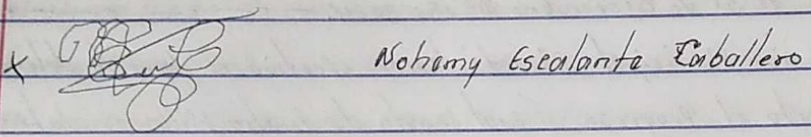 x Nohemy Escalante Caballero